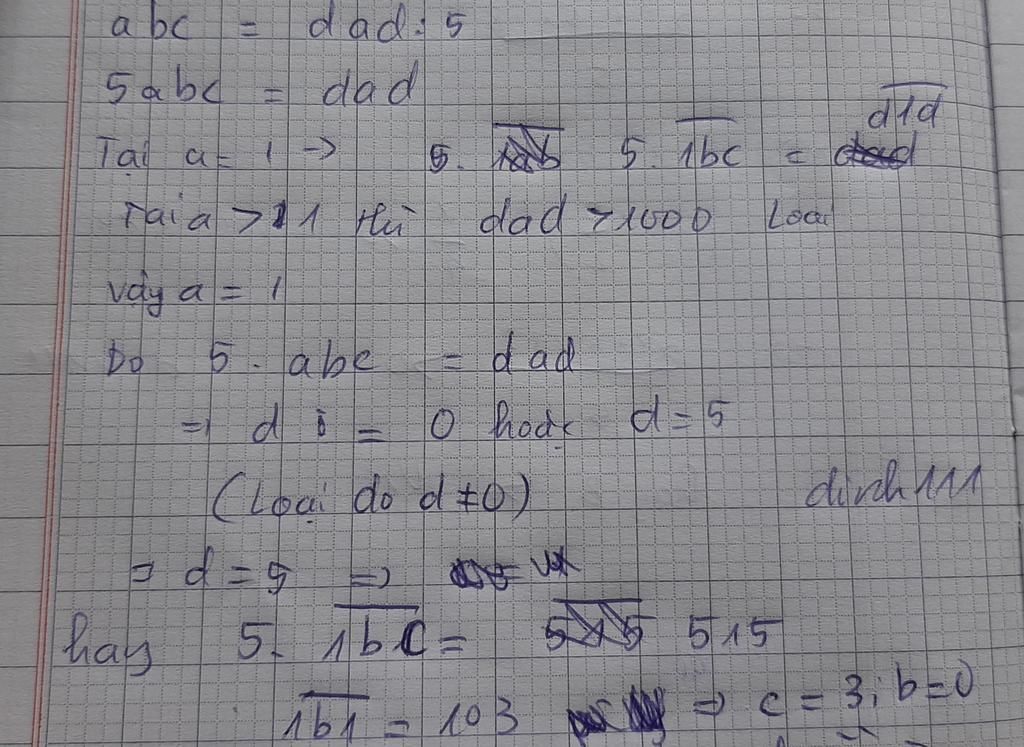 abc = dad : 5
5abc = dad
Tại a = 1 → 5. 5. 1bc = d1d
Tại a > 1 thì dad > 1000 Loại
Vậy a = 1
Do 5 . abc = dad
=> d = 0 hoặc d = 5
(Loại do d ≠ 0) dinh111
=> d = 5 =>
hay 5. 1bc = 515
1b1 = 103 => c = 3; b = 0